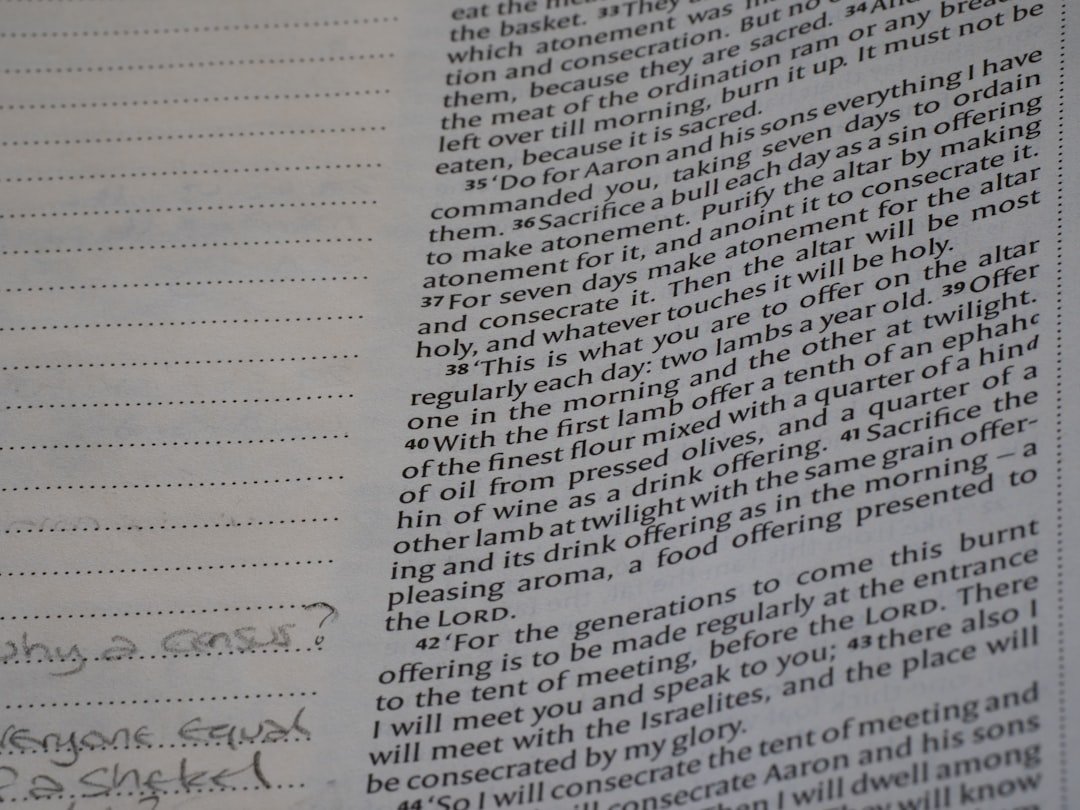 why a census?
everyone equal
a shekel
eat the
the basket. 33 They
which atonement was
tion and consecration. But no
them, because they are sacred. 34 And
the meat of the ordination ram or any bread
left over till morning, burn it up. It must not be
eaten, because it is sacred.
35 ‘Do for Aaron and his sons everything I have
commanded you, taking seven days to ordain
them. 36 Sacrifice a bull each day as a sin offering
to make atonement. Purify the altar by making
atonement for it, and anoint it to consecrate it.
37 For seven days make atonement for the altar
and consecrate it. Then the altar will be most
holy, and whatever touches it will be holy.
38 ‘This is what you are to offer on the altar
regularly each day: two lambs a year old. 39 Offer
one in the morning and the other at twilight.
40 With the first lamb offer a tenth of an ephah c
of the finest flour mixed with a quarter of a hin d
of oil from pressed olives, and a quarter of a
hin of wine as a drink offering. 41 Sacrifice the
other lamb at twilight with the same grain offer-
ing and its drink offering as in the morning – a
pleasing aroma, a food offering presented to
the LORD.
42 ‘For the generations to come this burnt
offering is to be made regularly at the entrance
to the tent of meeting, before the LORD. There
I will meet you and speak to you; 43 there also I
will meet with the Israelites, and the place will
be consecrated by my glory.
44 ‘So I will consecrate the tent of meeting and
will consecrate Aaron and his sons
Then I will dwell among
They will know